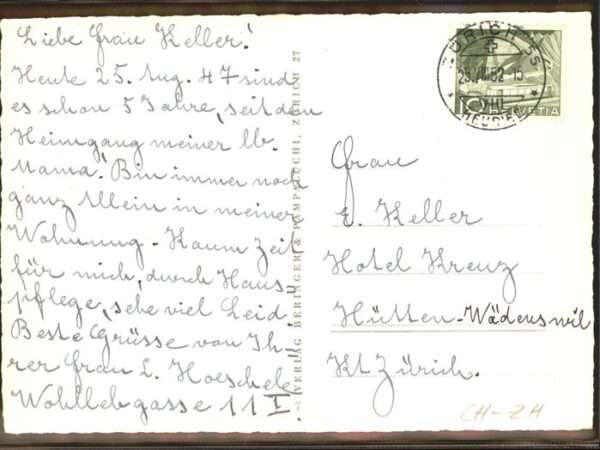 Liebe Frau Keller!
Heute 25. Aug. 47 sind
es schon 5 Jahre, seit dem
Heimgang meiner lb.
Mama! Bin immer noch
ganz Allein in meiner
Wohnung. Kaum Zeit
für mich, durch Haus-
pflege, sehe viel Leid!
Beste Grüsse von Ih-
rer Frau L. Hoeschele
Wohllebgasse 11 I.
VERLAG BERINGER & PAMPALUCHI, ZÜRICH 27
ZÜRICH
52-15
10
HELVETIA
Frau
E. Keller
Hotel Kreuz
Hütten-Wädenswil
Kt Zürich.
CH-ZH